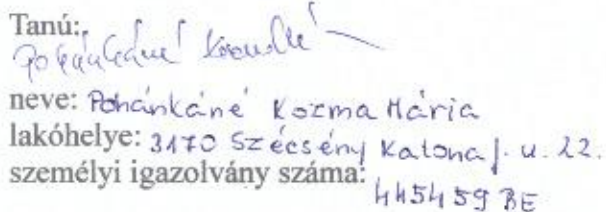 Tanú:
neve: Pohánkáné Kozma Mária
lakóhelye: 3170 Szécsény Katona J. u. 22.
személyi igazolvány száma: 445459 BE